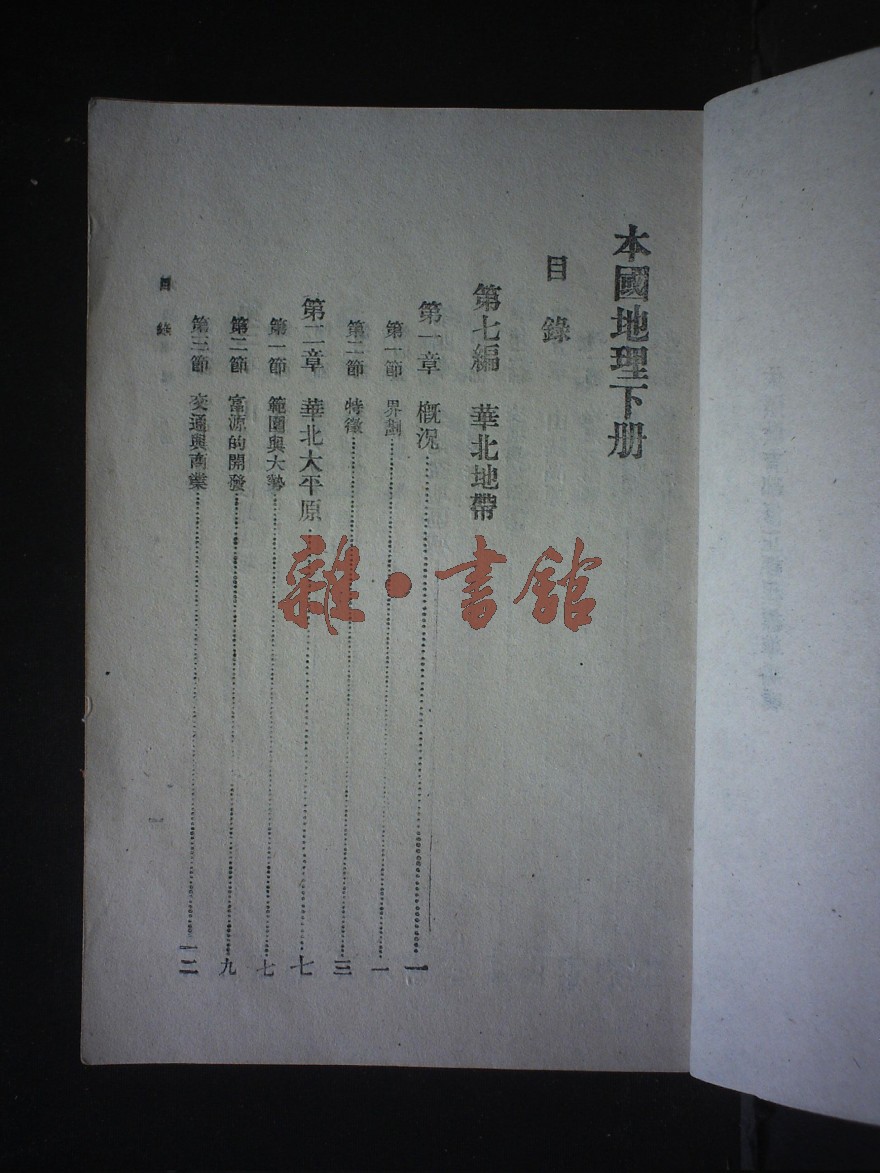 本國地理下册
目錄
第七編 華北地帶
第一章 概況 一
第一節 界劃 一
第二節 特徵 三
第二章 華北大平原 七
第一節 範圍與大勢 七
第二節 富源的開發 九
第三節 交通與商業 一二
目錄
一
雜·書館